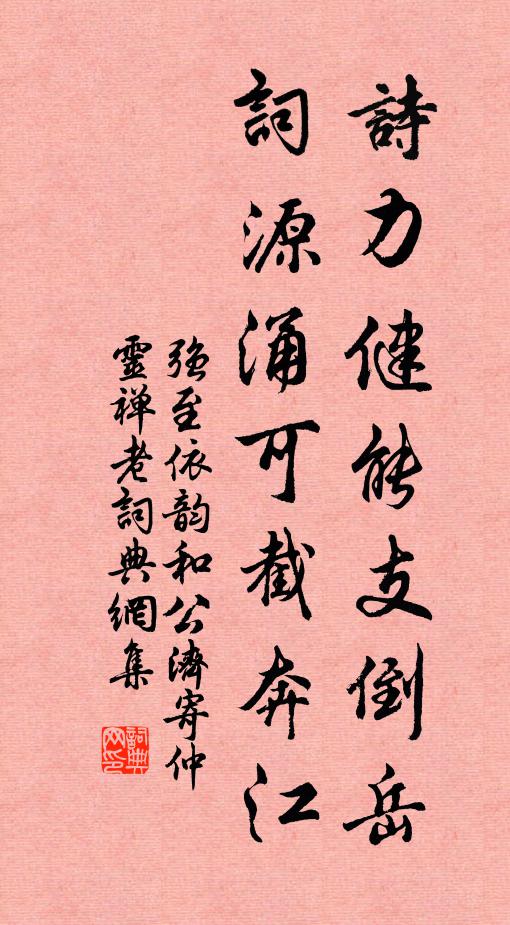 詩力健能支倒岳
詞源涌可截奔江
強至依韵和公濟寄仲
靈禅老詞典網集
詞典网印